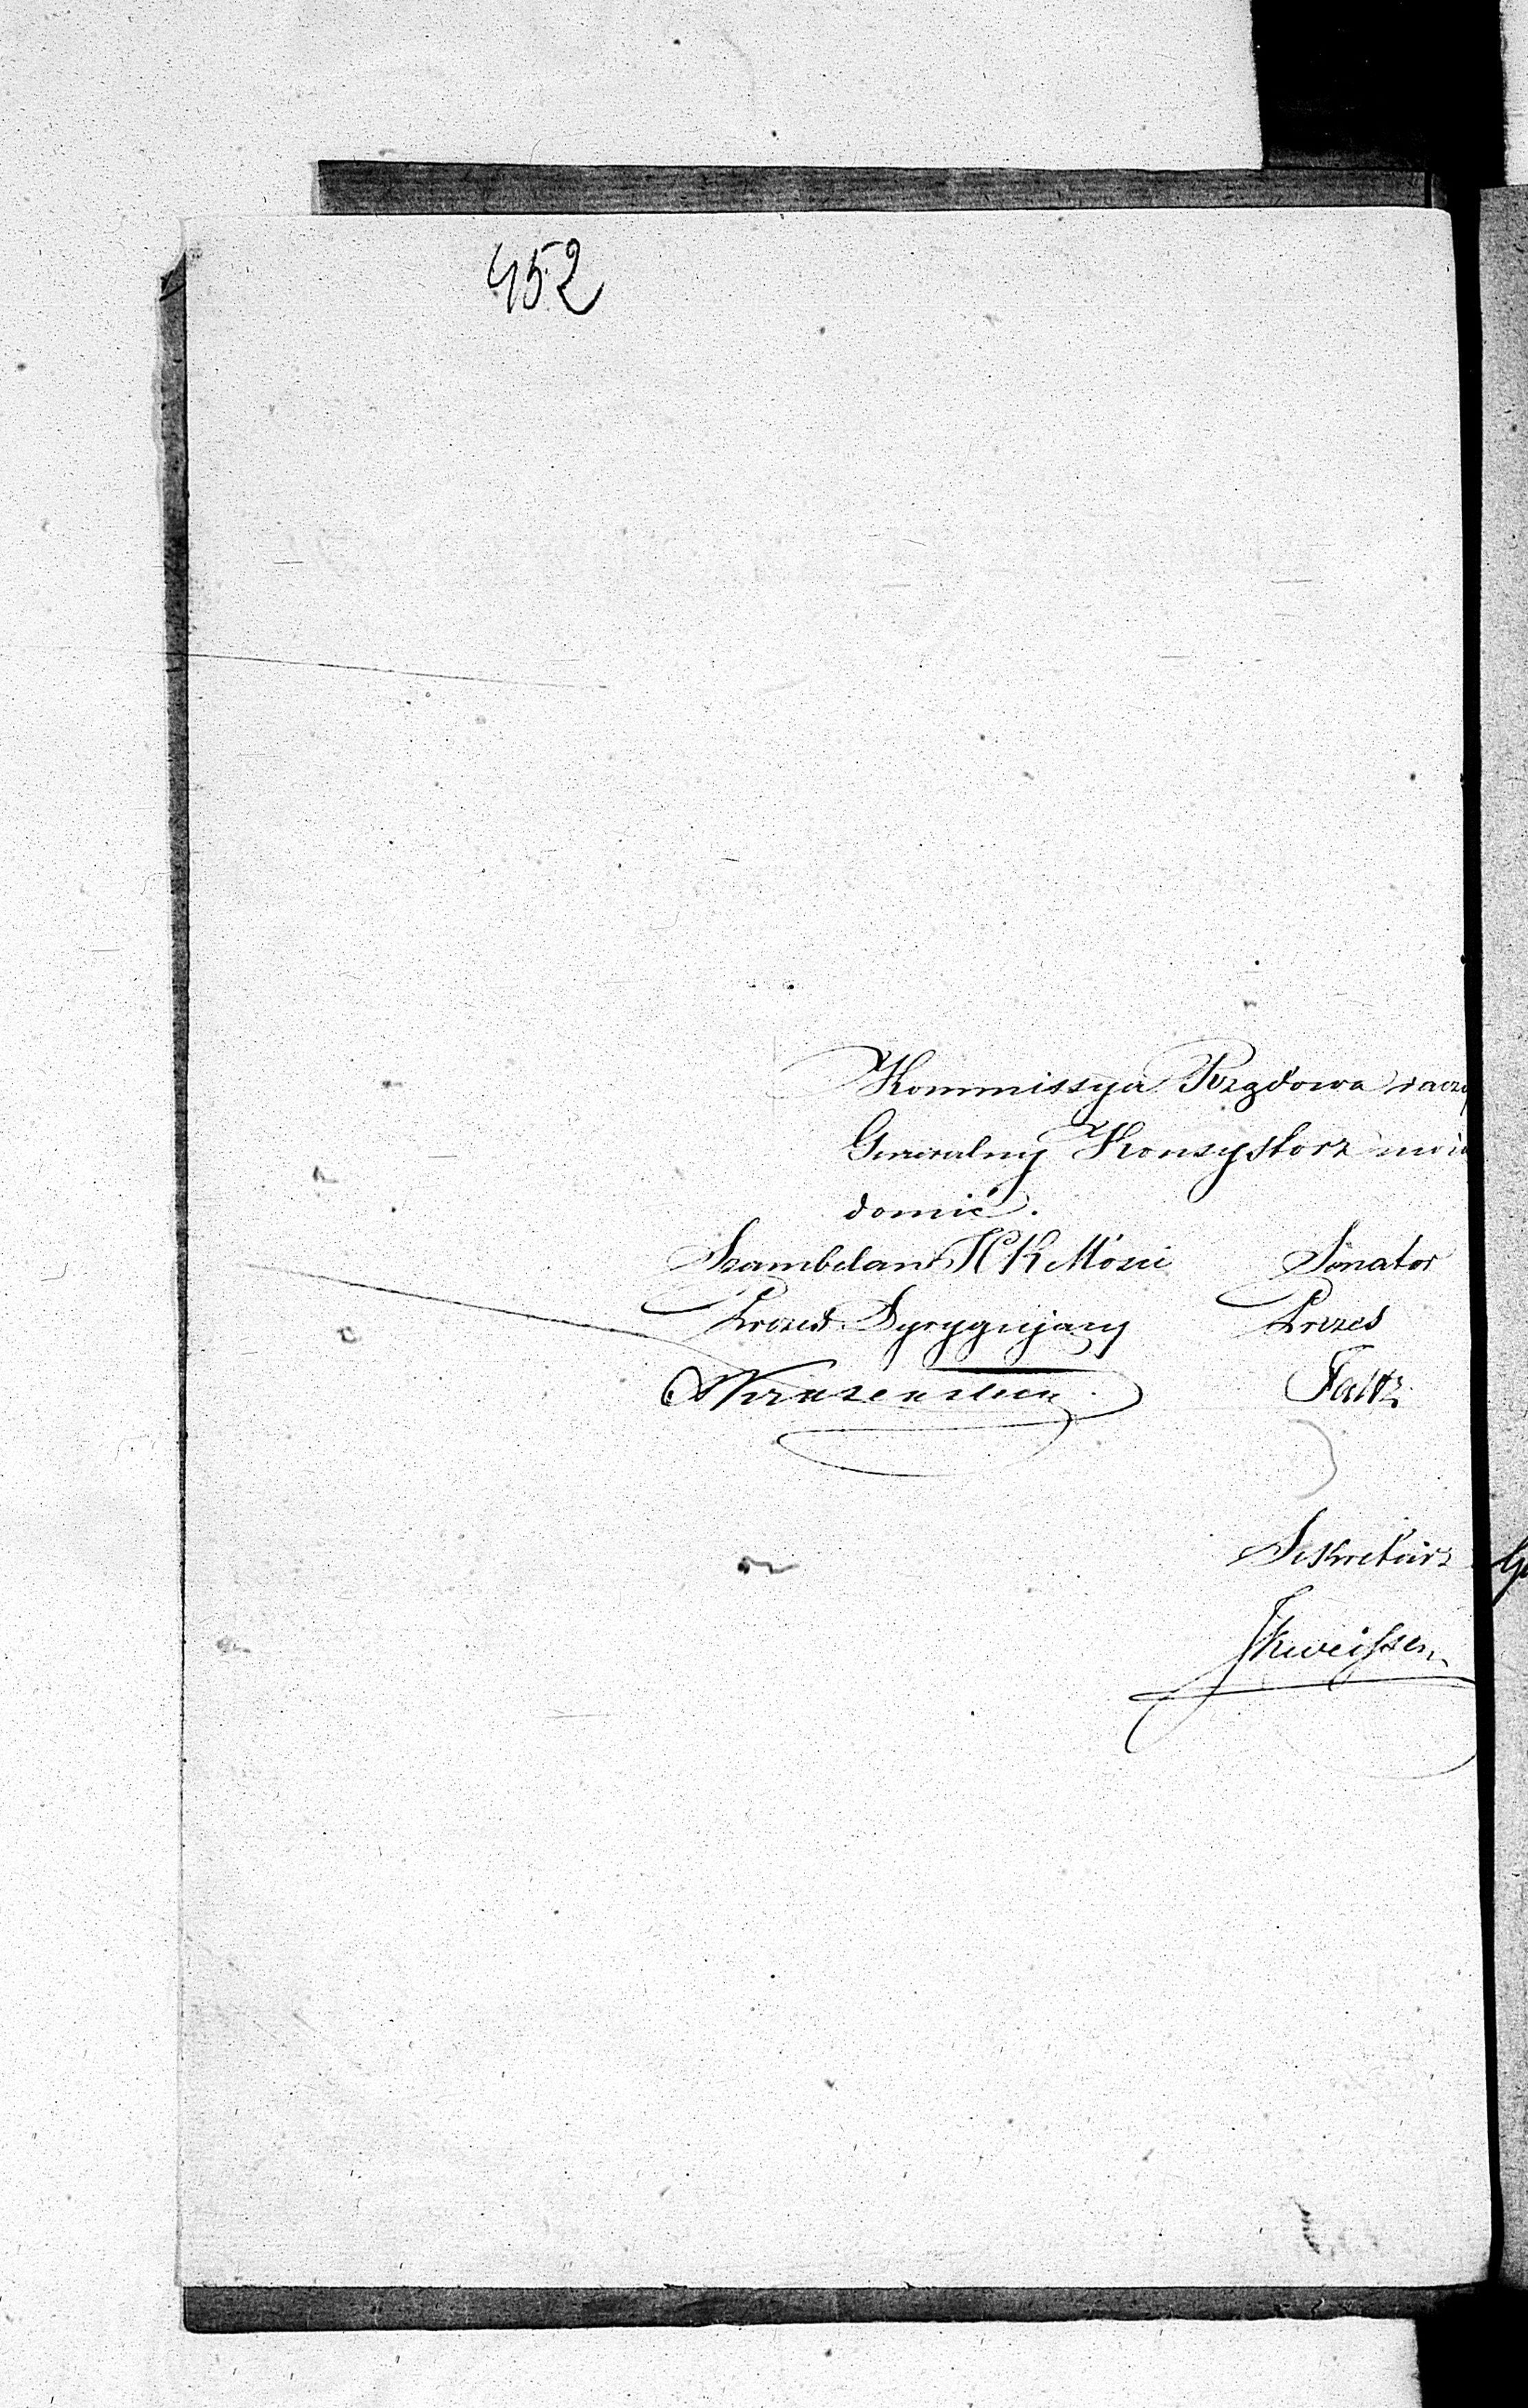 452
Kommissya Rządowa raczy
Generalny Konsystorz uwia
domić.
Szambelan J K Mości Senator
Prezes Dyrygujący Prezes
Faltz
Sekretarz